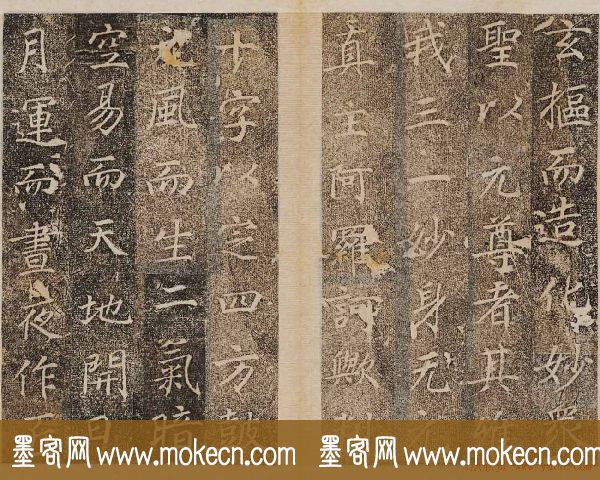 玄樞而造化妙眾
聖以元尊者其唯
我三一妙身无
真主阿羅訶歟判
十字以定四方鼓
元風而生二氣暗
空易而天地開日
月運而晝夜作
墨客网 www.mokecn.com 墨客网 www.mokecn.com